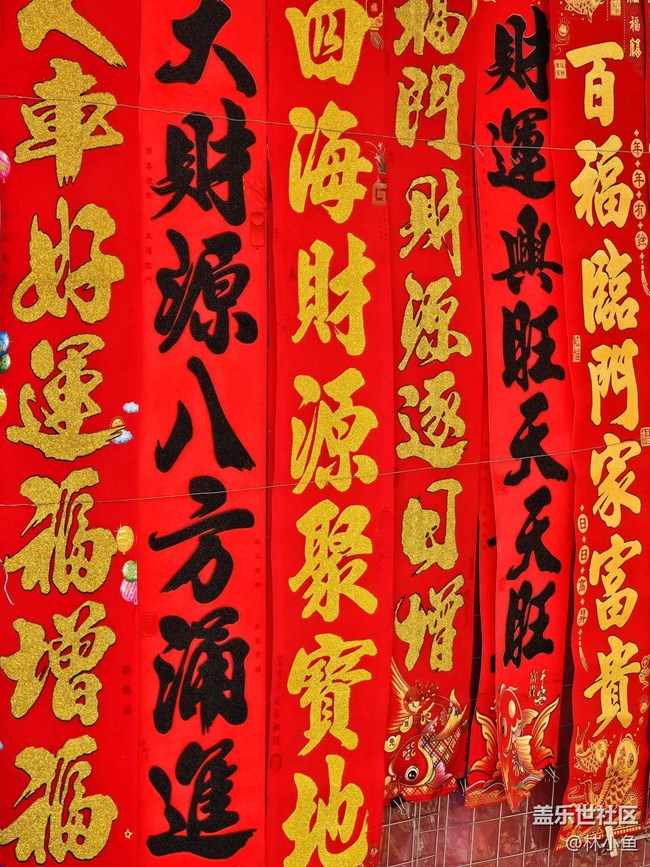 百福臨門家富貴
年年有餘
日日高昇
財運興旺天天旺
福門財源逐日增
四海財源聚寶地
大財源八方涌進
人車好運福增福
盖乐世社区
@林小鱼